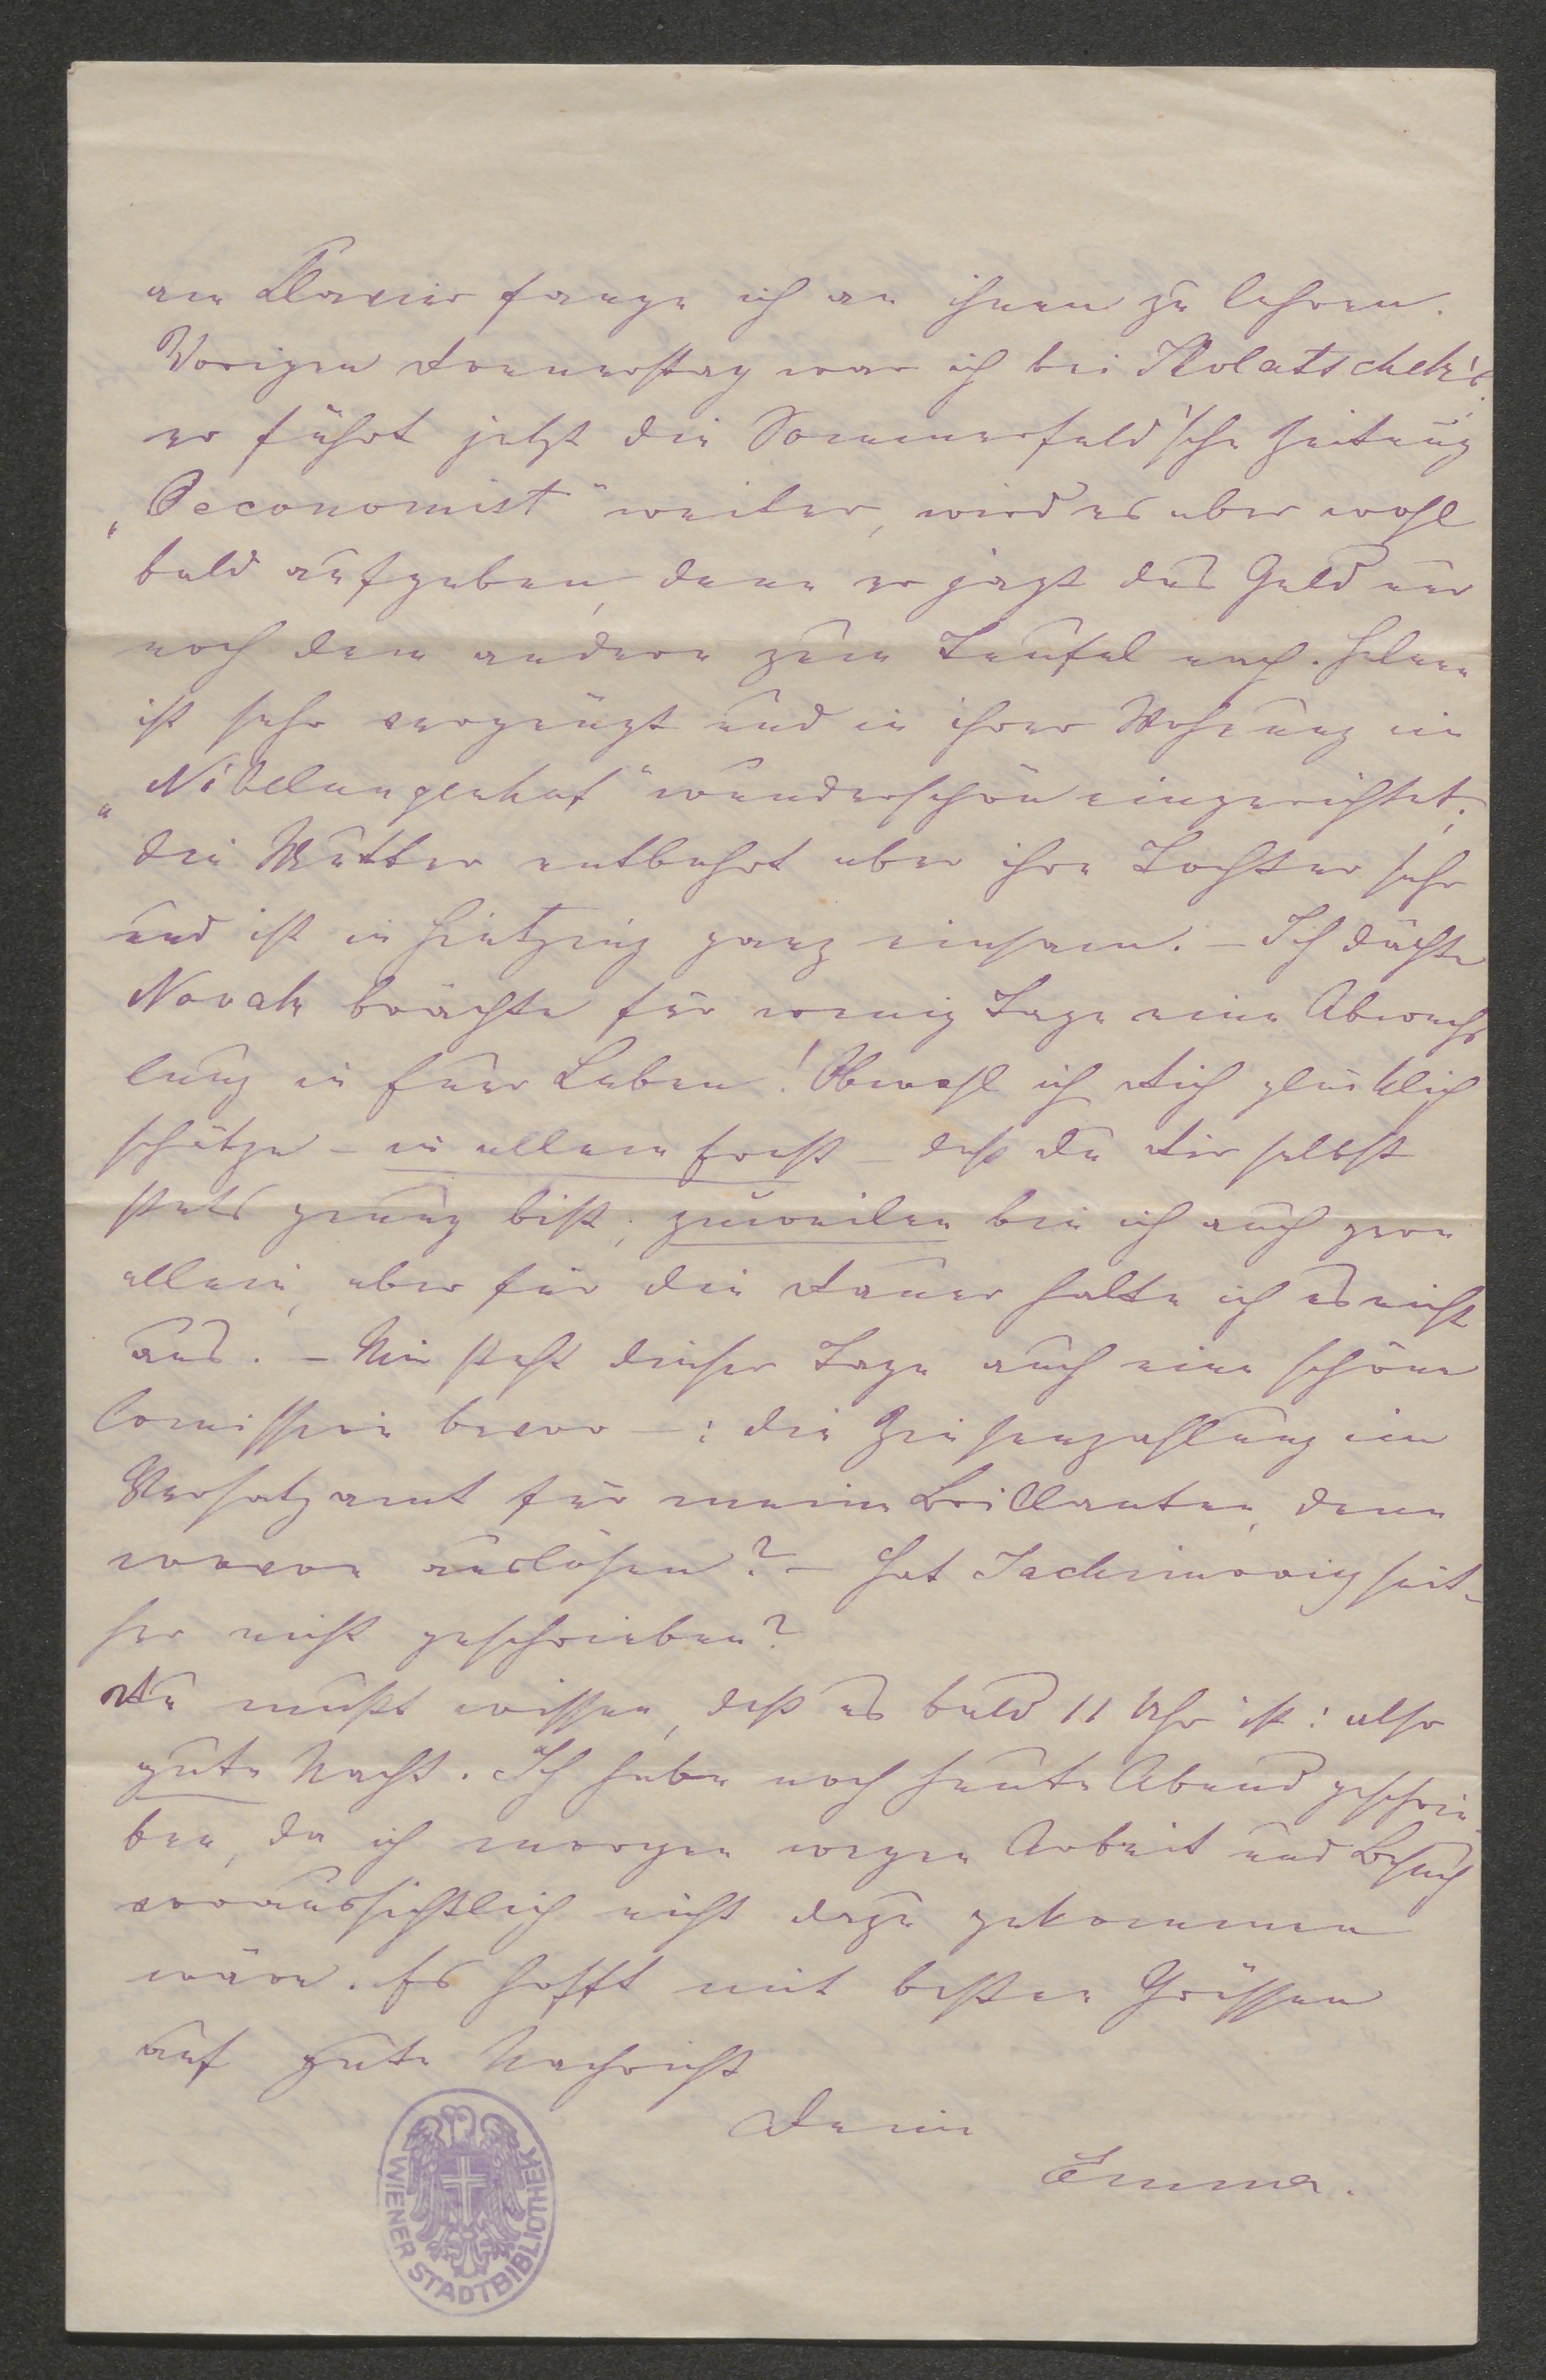 am Klavier fange ich an ihnen zu lehren.
Vorigen Donnerstag war ich bei Kolatschek's
er führt jetzt die Sommerfeld'sche Zeitung
„Oeconomist" weiter, wird es aber wohl
bald aufgeben, denn er jagt das Geld nur
noch dem andern zum Teufel nach. Helene
ist sehr vergnügt und in ihrer Wohnung im
„Nibelungenhof" wunderschön eingerichtet;
die Mutter entbehrt aber ihre Tochter sehr
und ist in Hietzing ganz einsam. – Ich dächte
Novak brächte für wenig Tage eine Abwechs
lung in Euer Leben! Obwohl ich Dich glücklich
schätze – in allem Ernst – daß Du Dir selbst
stets genug bist; zuweilen bin ich auch gern
allein, aber für die Dauer halte ich es nicht
aus. – Mir steht dieser Tage auch eine schöne
Comission bevor –: die Zinsenzahlung im
Versatzamt für meine Brillanten, denn
wovon auslösen? – Hat Jachimovicz seit-
her nicht geschrieben?
Du mußt wissen, daß es bald 11 Uhr ist: also
gute Nacht. Ich habe noch heute Abend geschrie
ben, da ich morgen wegen Arbeit und Besuch
voraussichtlich nicht dazu gekommen
wäre. Es hofft mit besten Grüssen
auf gute Nachricht
Deine
Emma.
WIENER STADTBIBLIOTHEK